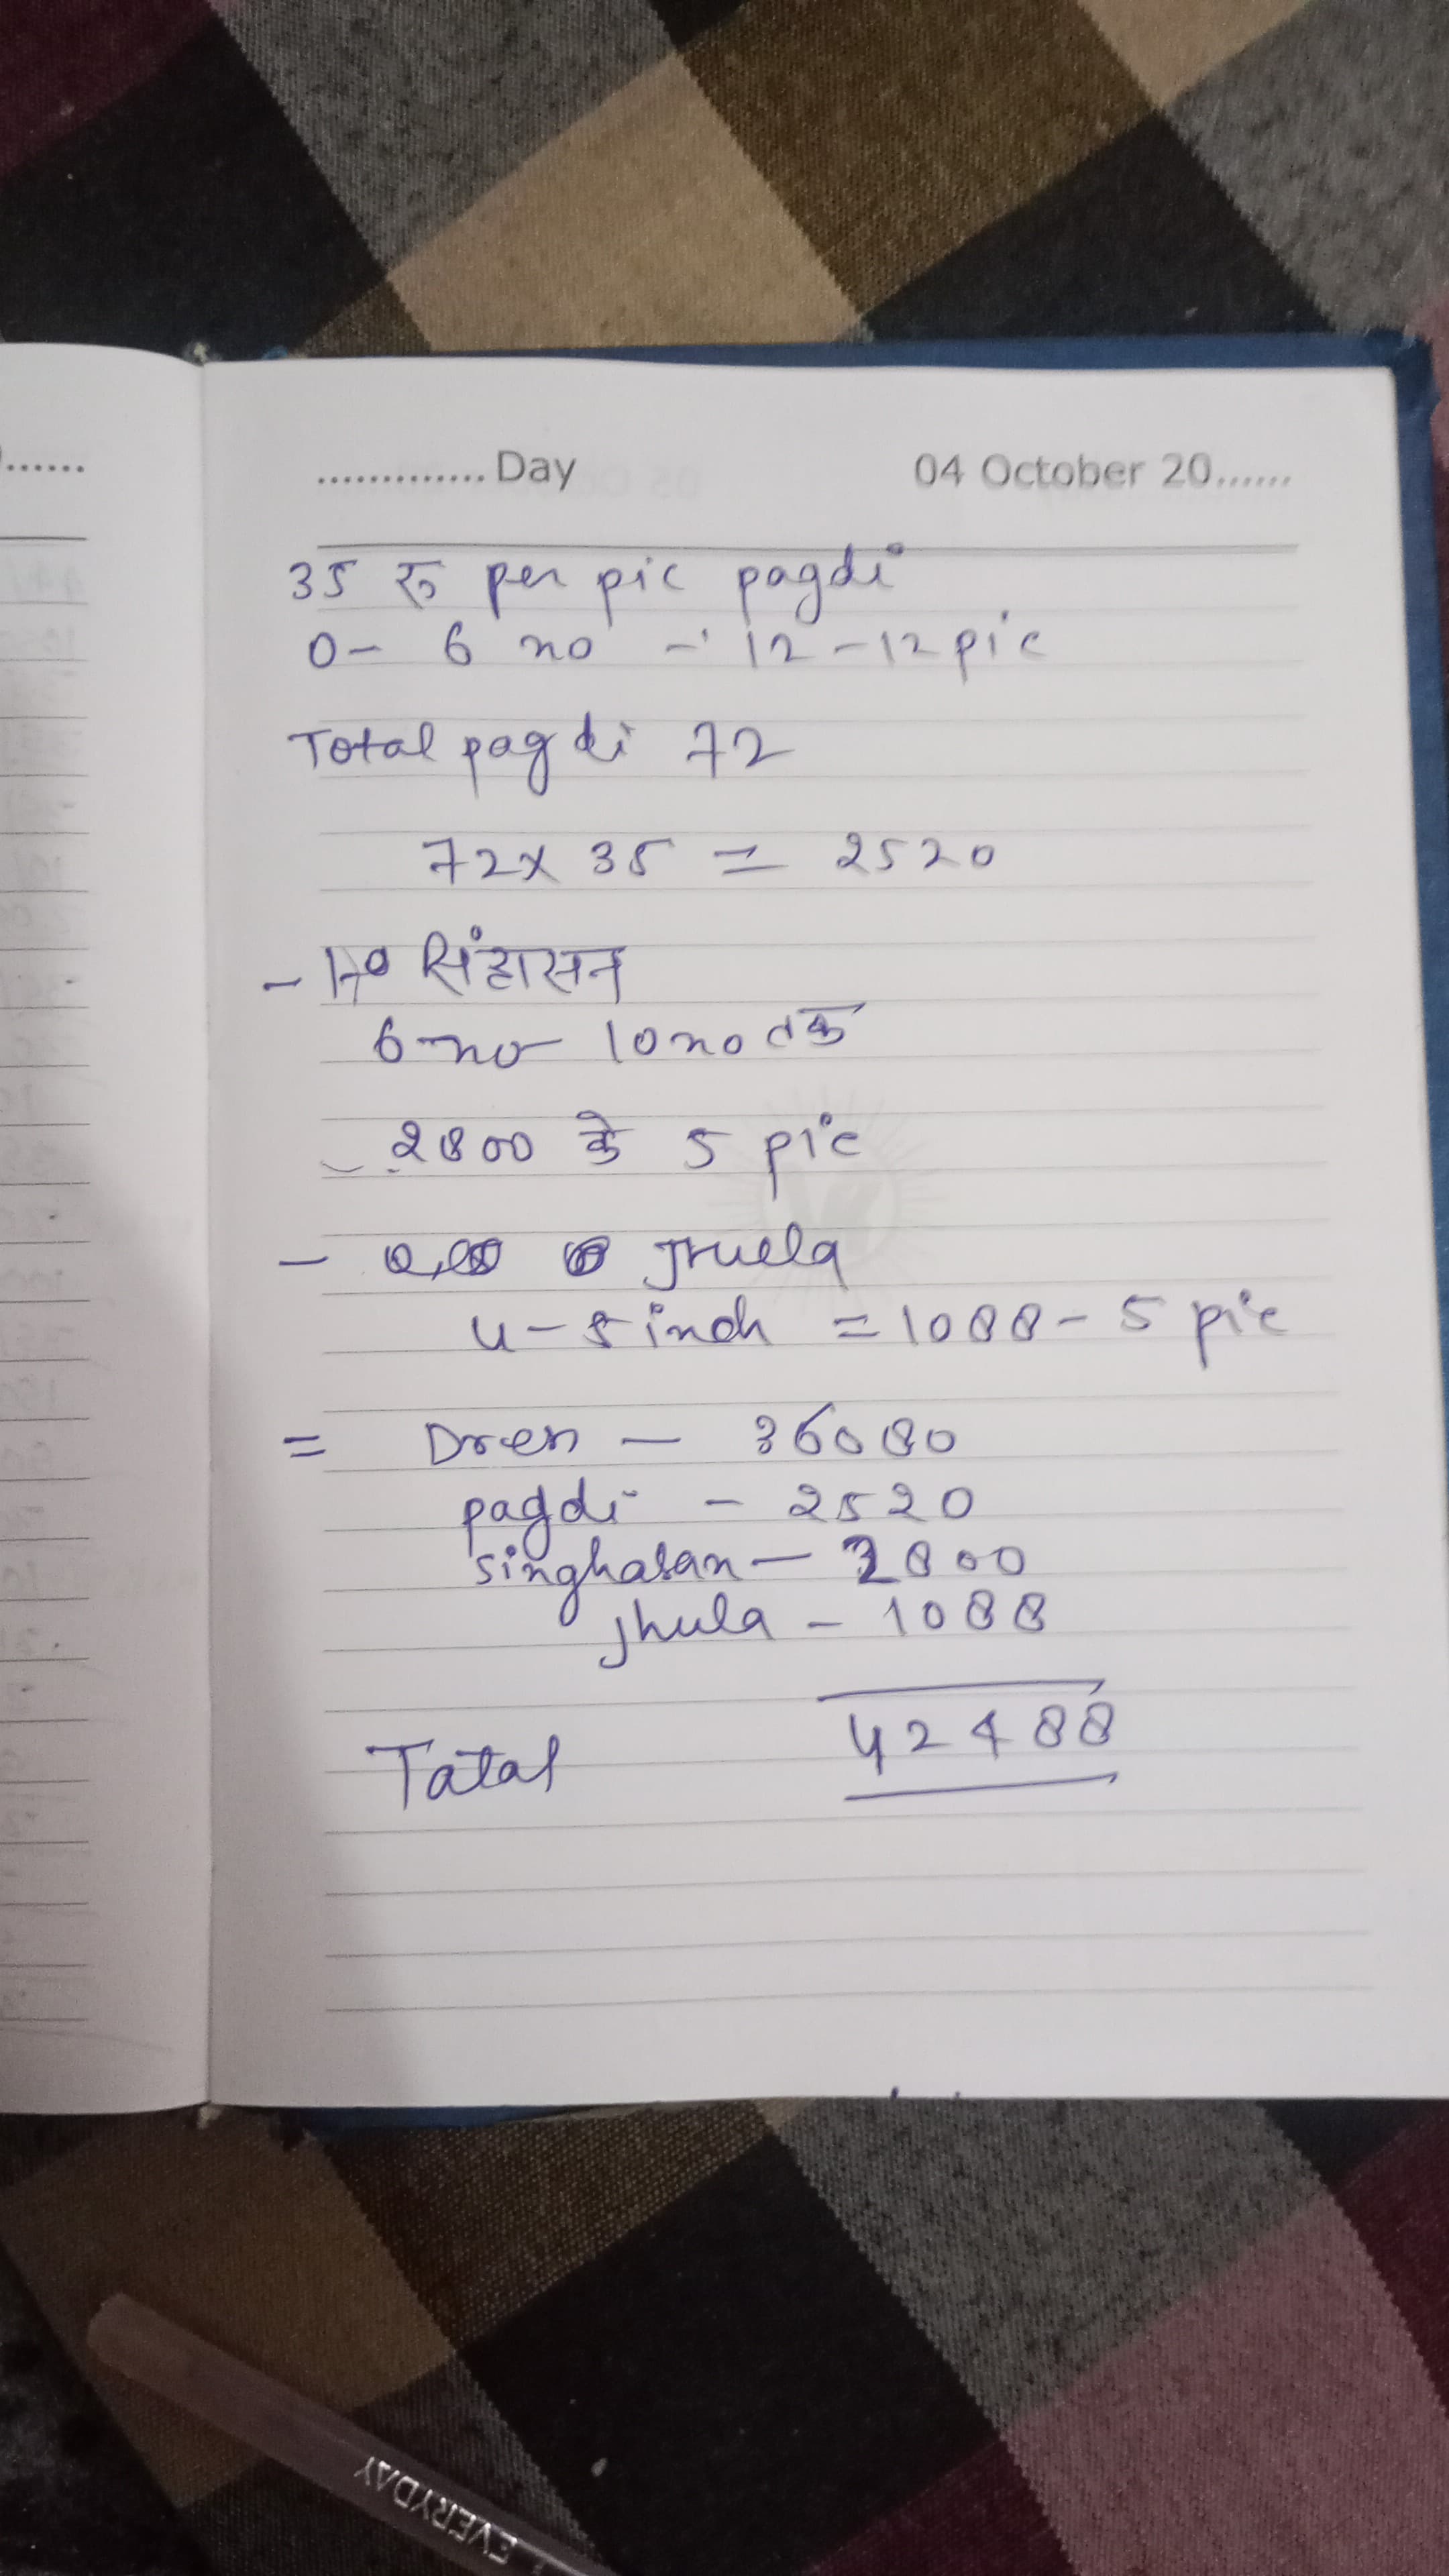 ............. Day 04 October 20......
35 रु per pic pagdi
0- 6 no - 12-12 pic
Total pagdi 72
72 x 35 = 2520
- सिंहासन
6 no 10 no तक
2800 के 5 pic
- jhula
4-5 inch = 1088 - 5 pic
= Dres - 36080
pagdi - 2520
singhasan - 2800
jhula - 1088
Tatal 42488
EVERYDAY